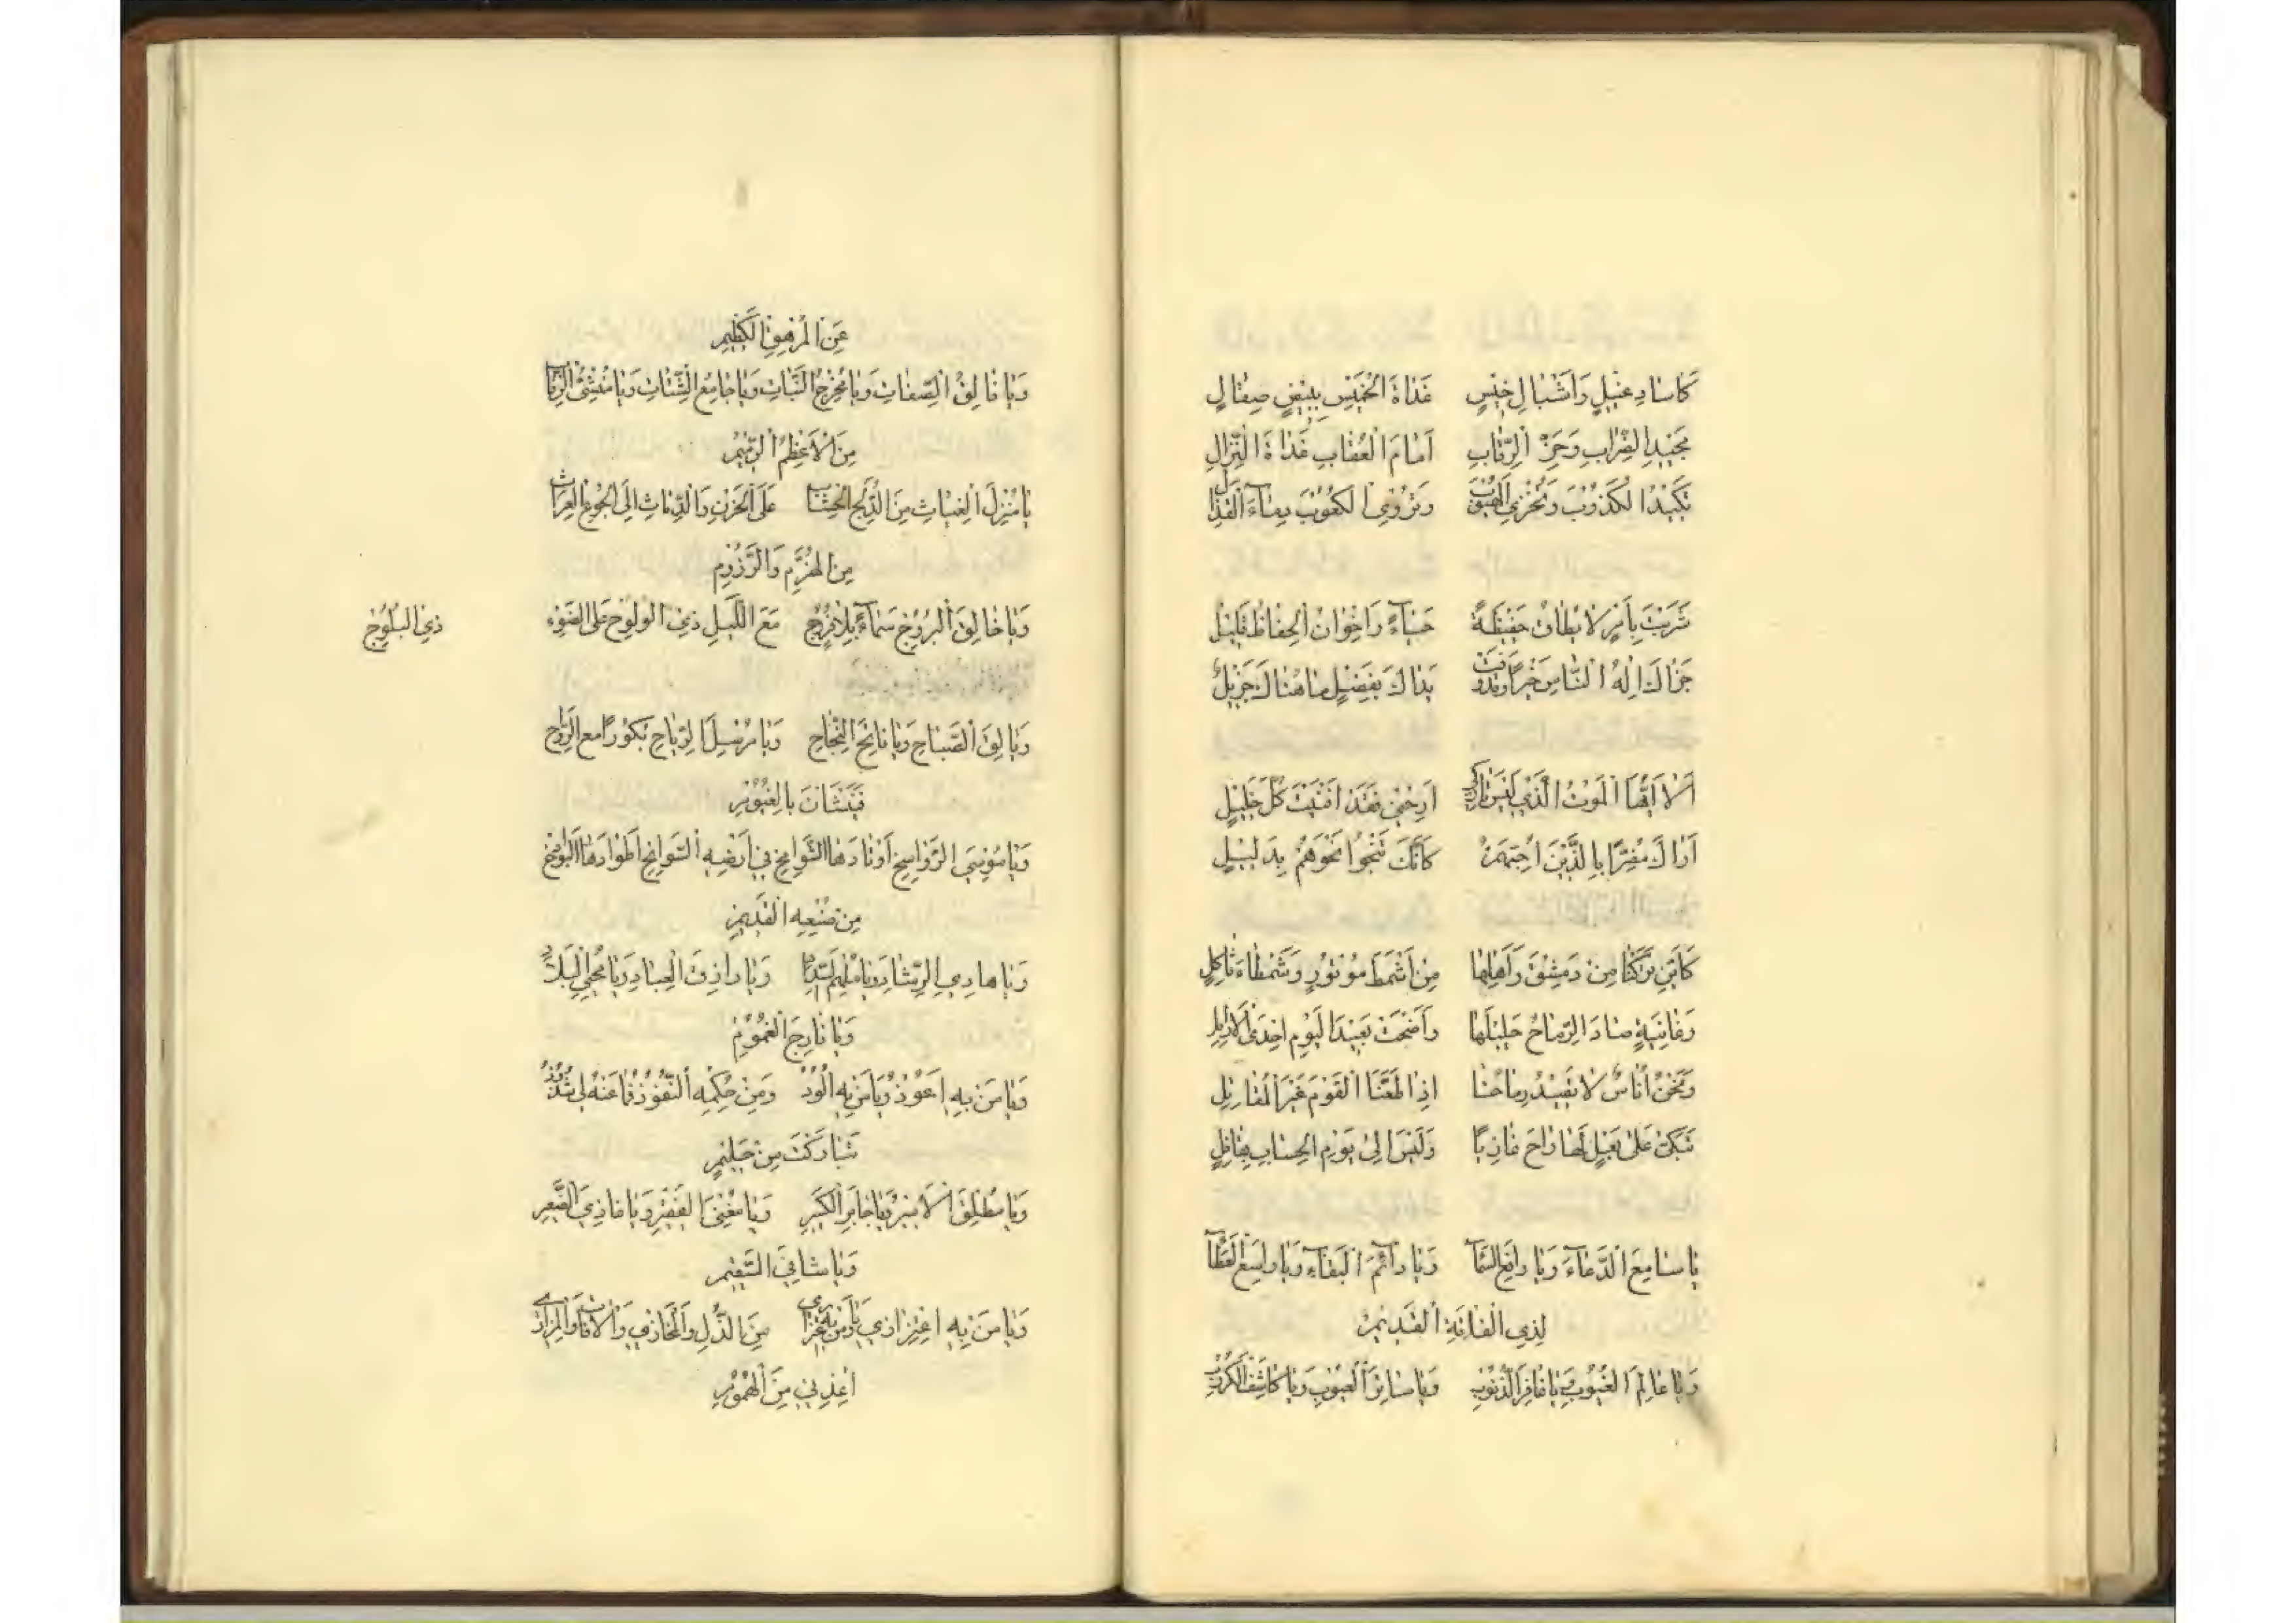 كَاسَادِ غَيْلٍ وَاَشْبَالِ خِيْسٍ غَدَاةَ الْخَمِيْسِ بِبِيْضٍ صِقَالٍ
بِجَيْدِ الضِّرَابِ وَحَزِّ الرِّقَابِ اَمَامَ الْعُقَابِ غَدَاةَ النِّزَالِ
تَكِيْدُ الْكَذُوْبَ وَتُخْزِي وَتُرْوِي الْكُعُوْبَ دِمَاءَ الْقَذَالِ
شَرِيْتَ بِأَمْرٍ لَا يُطَاقُ حَفِيْظَةً حَيَاءً وَاِخْوَانُ الْحِفَاظِ قَلِيْلُ
جَزَاكَ اِلٰهُ النَّاسِ خَيْرًا بَدَاكَ بِفَضْلٍ مَا هُنَاكَ جَزِيْلُ
اَلَا اَيُّهَا الْمَوْتُ الَّذِي لَيْسَ تَارِكِي اَرِحْنِي فَقَدْ اَفْنَيْتَ كُلَّ خَلِيْلٍ
اَرَاكَ مُضِرًّا بِالَّذِيْنَ اُحِبُّهُمْ كَاَنَّكَ تَنْحُوا نَحْوَهُمْ بِدَلِيْلٍ
كَأَيِّنْ تَرَكْنَا مِنْ دِمَشْقَ وَاَهْلِهَا مِنْ اَشْمَطَ مَوْتُوْرٍ وَشَمْطَاءَ ثَاكِلٍ
وَغَانِيَةٍ صَادَ الرِّمَاحُ حَلِيْلَهَا وَاَضْحَتْ بَعِيْدَ الْيَوْمِ اِحْدَى الْاَرَامِلِ
وَنَحْنُ اُنَاسٌ لَا تَصِيْدُ رِمَاحُنَا اِذَا طَعَنَّا الْقَوْمَ غَيْرَ الْمُقَاتِلِ
تَبْكِي عَلَى بَعْلٍ لَهَا رَاحَ غَازِيًا وَلَيْسَ اِلٰى يَوْمِ الْحِسَابِ بِقَافِلٍ
يَا سَامِعَ الدُّعَاءِ وَيَا رَافِعَ السَّمَآ وَيَا دَائِمَ الْبَقَاءِ وَيَا وَاسِعَ الْعَطَآ
لِذِي الْفَاقَةِ الْقَدِيْمِ
وَيَا عَالِمَ الْغُيُوْبِ وَيَا غَافِرَ الذُّنُوْبِ وَيَا سَاتِرَ الْعُيُوْبِ وَيَا كَاشِفَ الْكُرُوْبِ
عَنِ الْمُرْهَقِ الْكَظِيْمِ
وَيَا فَالِقَ الصِّفَاتِ وَيَا مُخْرِجَ النَّبَاتِ وَيَا جَامِعَ الشَّتَاتِ وَيَا مُنْشِئَ الرُّفَاتِ
مِنَ الْاَعْظُمِ الرَّمِيْمِ
يَا مُنْزِلَ الْغِيَاثِ مِنَ الدُّلَّجِ الْحِثَاثِ عَلَى الْحَزْنِ وَالدِّمَاثِ اِلَى الْجُوَّعِ الْغِرَاثِ
مِنَ الْهُزَّمِ وَالرَّزُوْمِ
وَيَا خَالِقَ الْبُرُوْجِ سَمَاءً بِلَا فُرُوْجٍ مَعَ اللَّيْلِ ذِي الْوُلُوْجِ عَلَى الضَّوْءِ
ذِي الْبُلُوْجِ
وَيَا فَالِقَ الصَّبَاحِ وَيَا فَاتِحَ النَّجَاحِ وَيَا مُرْسِلَ الرِّيَاحِ بُكُوْرًا مَعَ الرَّوَاحِ
فَيَنْشَأْنَ بِالْغُيُوْمِ
وَيَا مُرْسِيَ الرَّوَاسِخِ اَوْتَادَهَا الشَّوَامِخِ فِي اَرْضِهِ السَّوَانِحِ اَطْوَادَهَا الْبَوَاذِخِ
مِنْ صُنْعِهِ الْقَدِيْمِ
وَيَا هَادِيَ الرَّشَادِ وَيَا مُلْهِمَ السَّدَادِ وَيَا رَازِقَ الْعِبَادِ وَيَا مُحْيِيَ الْبِلَادِ
وَيَا فَارِجَ الْغُمُوْمِ
وَيَا مَنْ بِهِ اَعُوْذُ وَيَا مَنْ بِهِ اَلُوْذُ وَمَنْ حُكْمُهُ النُّفُوْذُ فَمَا عَنْهُ لِي شُذُوْذُ
تَبَارَكْتَ مِنْ حَلِيْمٍ
وَيَا مُطْلِقَ الْاَسِيْرِ وَيَا جَابِرَ الْكَسِيْرِ وَيَا مُغْنِيَ الْفَقِيْرِ وَيَا غَاذِيَ الصَّغِيْرِ
وَيَا شَافِيَ السَّقِيْمِ
وَيَا مَنْ بِهِ اعْتِزَازِي وَيَا مَنْ بِهِ مِنَ الذُّلِّ وَالْمَخَازِي وَالْاٰفَاتِ وَالْمَرَازِي
اَعِذْنِي مِنَ الْهُمُوْمِ